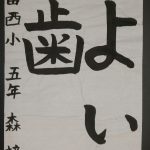 よい
歯
西小 五年 森